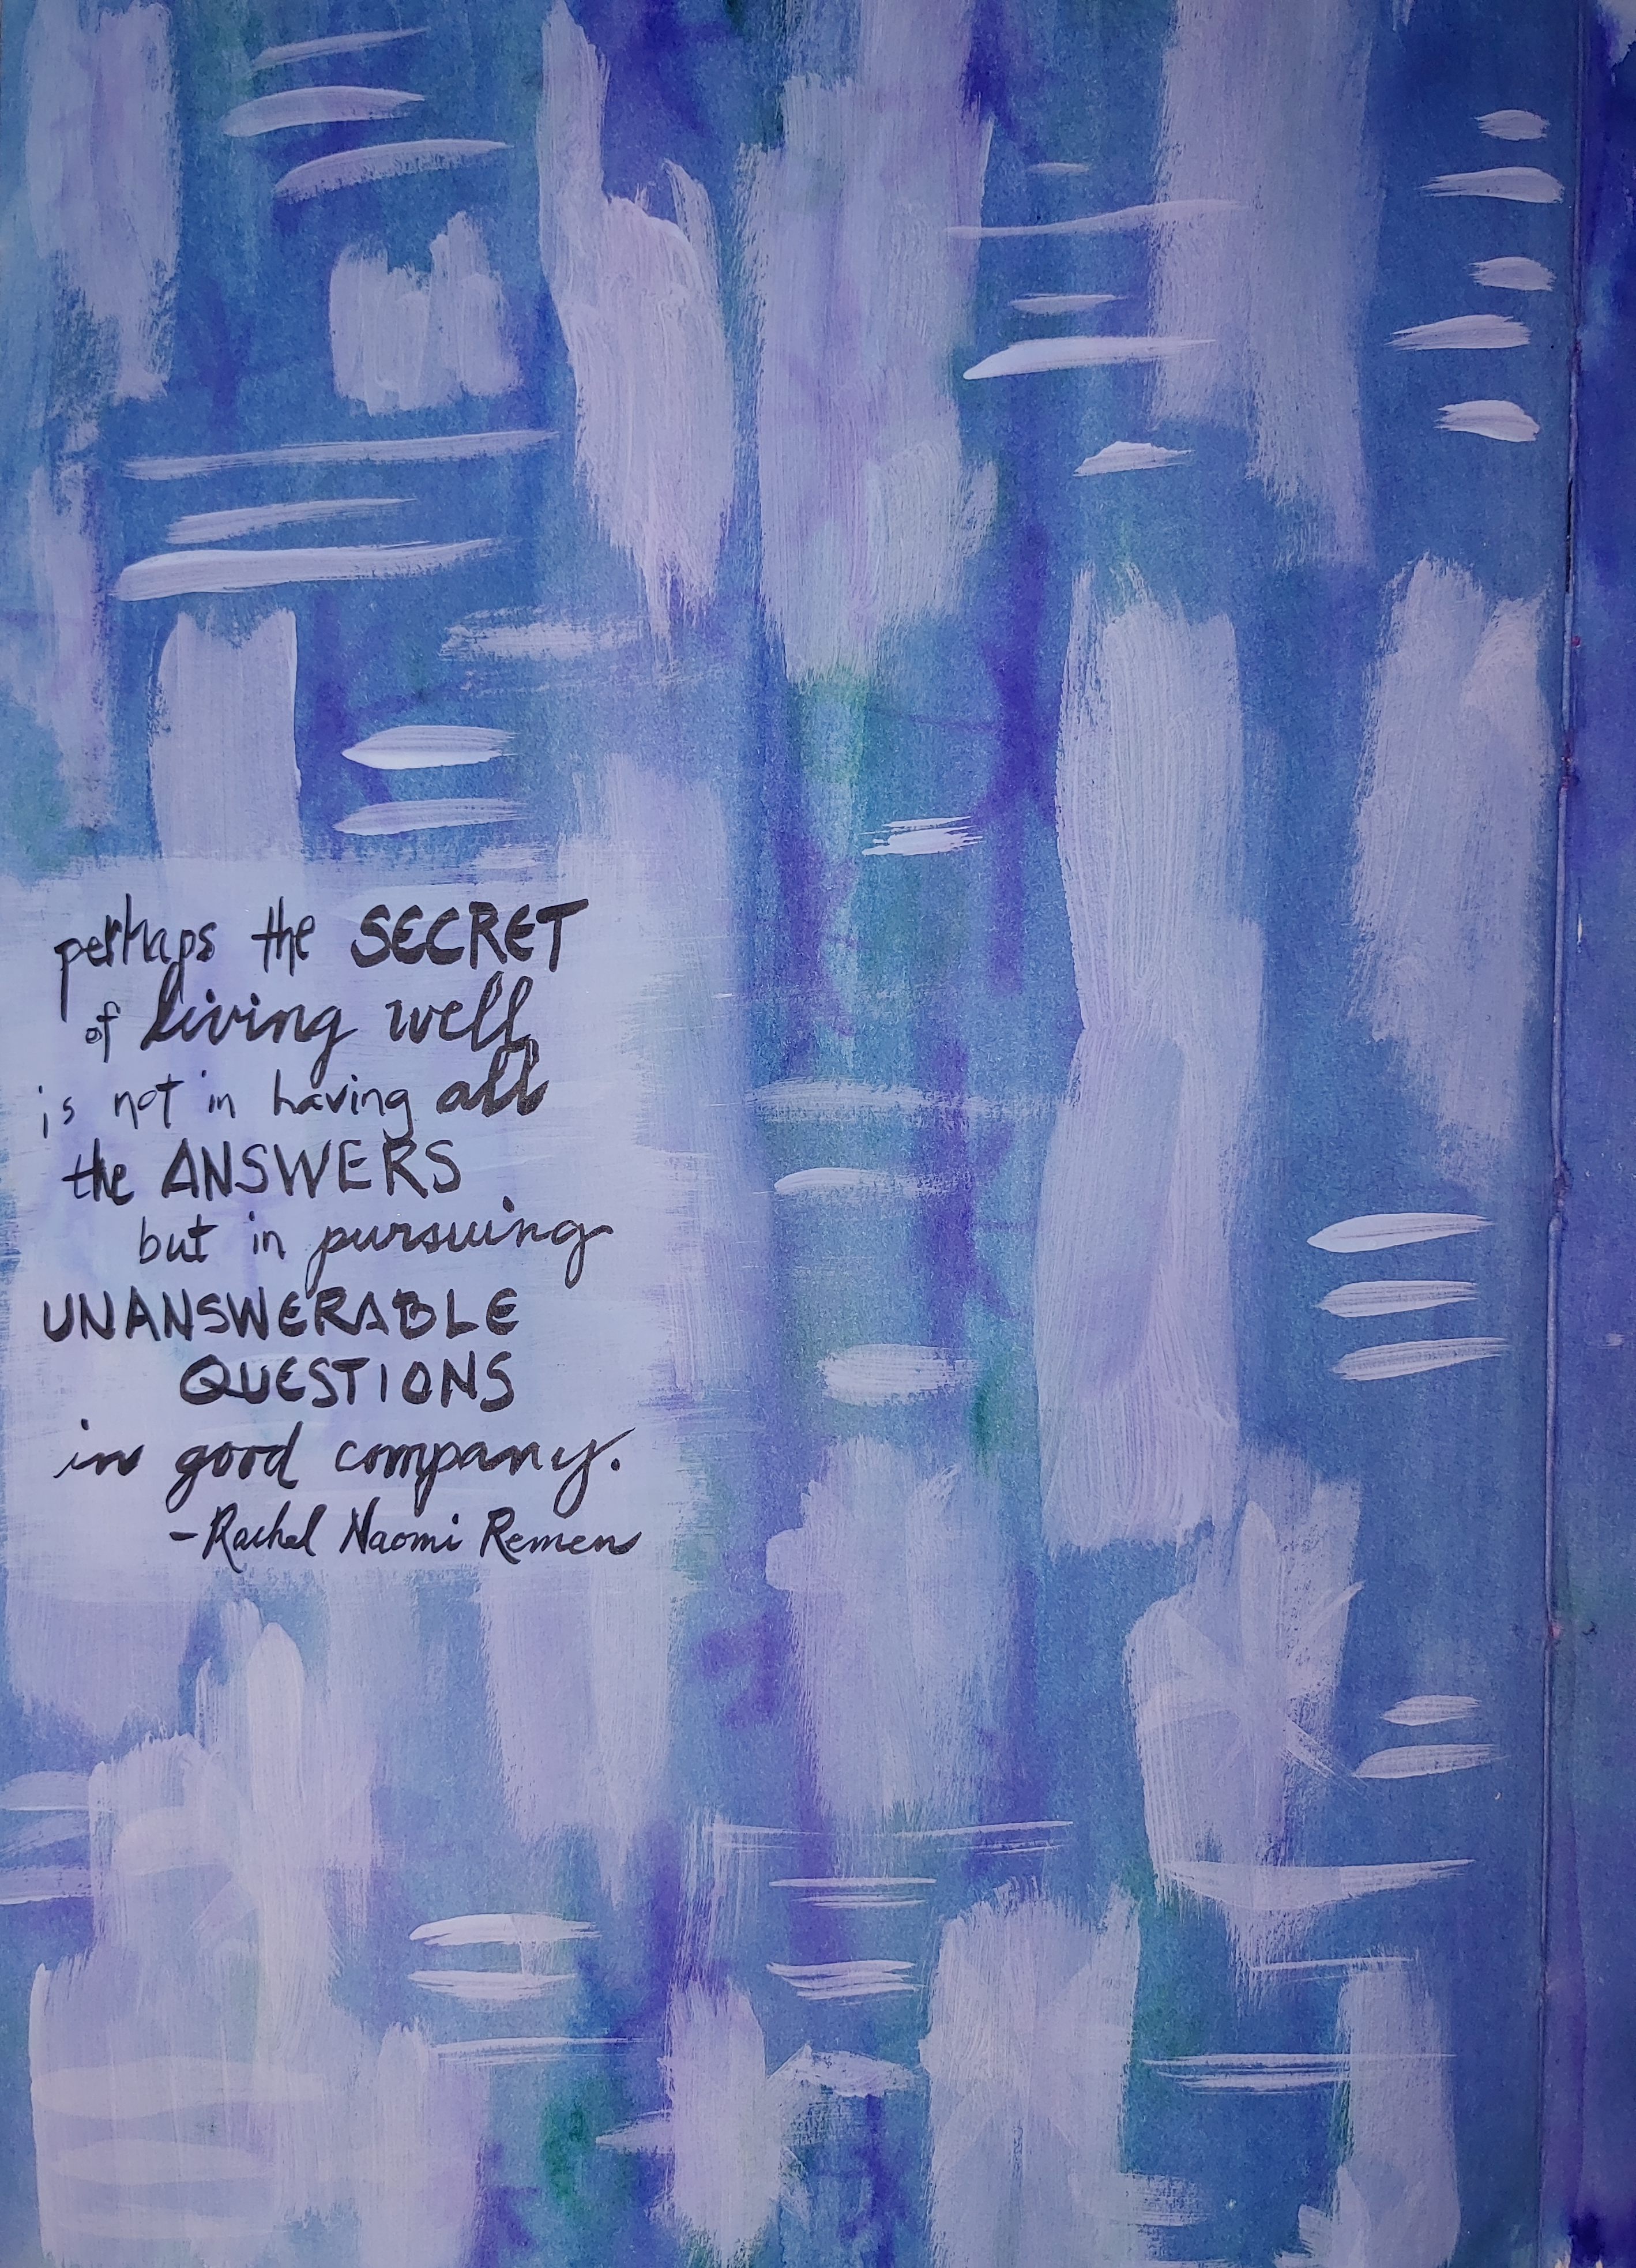 perhaps the SECRET
of living well
is not in having all
the ANSWERS
but in pursuing
UNANSWERABLE
QUESTIONS
in good company.
-Rachel Naomi Remen